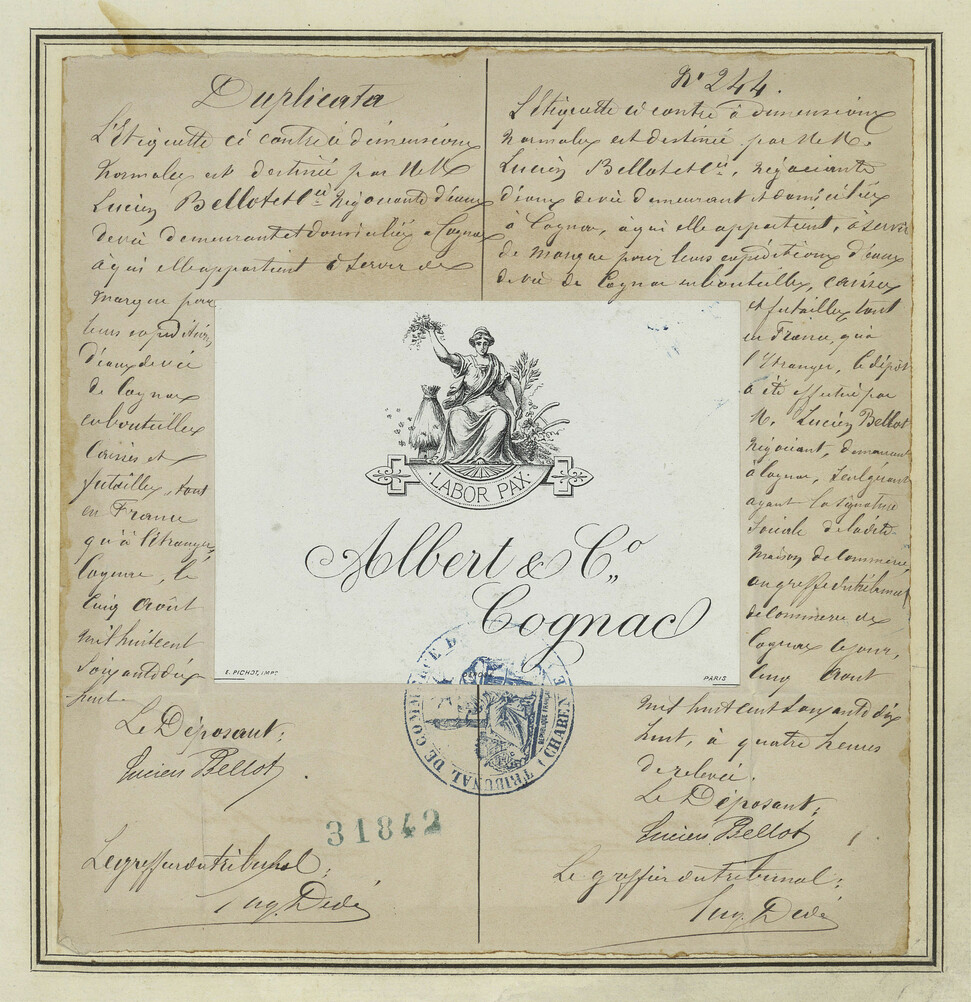 Duplicata
L'Etiquette ci contre à dimensions
Normales est destinée par M.M.
Lucien Bellot et Cie Négociants d'eaux
devie demeurant et domiciliés a Cognac
à qui elle appartient à servir de
marque pour
leurs expéditions
d'eaux de vie
de Cognac
en bouteilles
Caisses et
futailles, tant
en France
qu'à l'étranger,
Cognac, le
Cinq Août
mil huit cent
Soixante dix
huit.
Le Déposant;
Lucien Bellot
Le greffier du tribunal;
Eug. Dedé
31842
N° 244.
L'étiquette ci contre à dimensions
Normales est destinée par M.M.
Lucien Bellot et Cie, Négociants
d'eaux devie demeurant et domiciliés
à Cognac, à qui elle appartient, à servir
de marque pour leurs expéditions d'eaux
de vie de Cognac en bouteilles, caisses
et futailles tant
en France, qu'à
l'Etranger, le dépôt
a été effectué par
M. Lucien Bellot
Négociant, demeurant
à Cognac, Seul gérant
ayant la signature
Sociale de la dite
Maison de Commerce,
au greffe du tribunal
de Commerce de
Cognac le jour,
Cinq Août
mil huit cent soixante dix
huit, à quatre heures
de relevée.
Le Déposant;
Lucien Bellot
Le greffier du tribunal;
Eug. Dedé
LABOR PAX
Albert & Co,,
Cognac
E. PICHOT, IMPR
DÉPOSÉ
PARIS
TRIBUNAL DE COMMERCE
(CHARENTE)